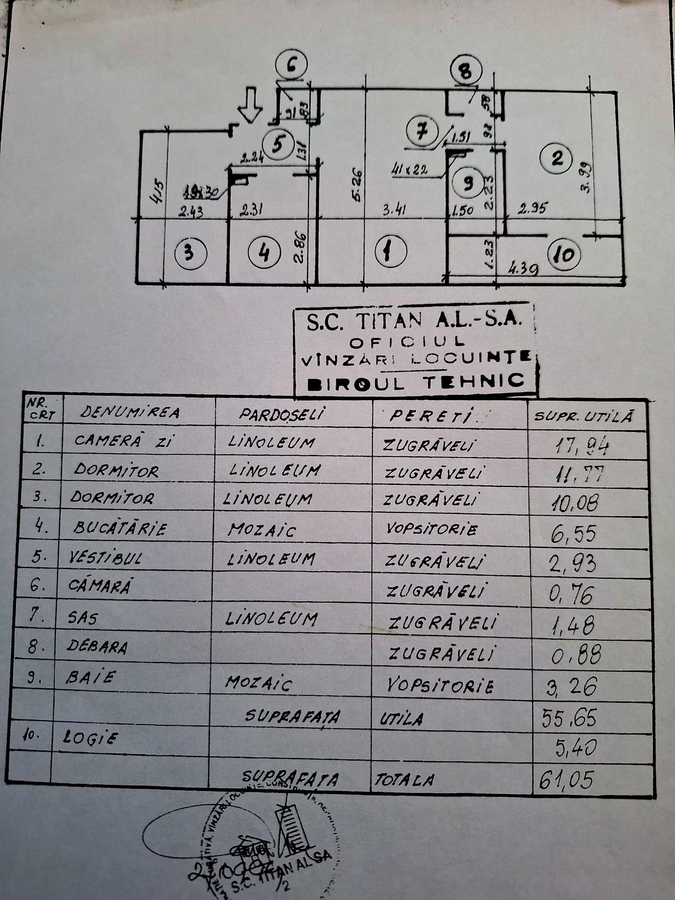 6
8
91
83
58
5
7
1.51
98
2
2.24
1.31
41x22
9
4.15
5.26
2.23
3.99
2.43
2.31
3.41
1.50
2.95
3
4
2.86
1
1.23
10
4.39
S.C. TITAN A.L.-S.A.
OFICIUL
VÎNZĂRI LOCUINŢE
BIROUL TEHNIC
NR. CRT DENUMIREA PARDOSELI PERETI SUPR. UTILĂ
1. CAMERĂ ZI LINOLEUM ZUGRĂVELI 17,94
2. DORMITOR LINOLEUM ZUGRĂVELI 11,77
3. DORMITOR LINOLEUM ZUGRĂVELI 10,08
4. BUCĂTĂRIE MOZAIC VOPSITORIE 6,55
5. VESTIBUL LINOLEUM ZUGRĂVELI 2,93
6. CĂMARĂ ZUGRĂVELI 0,76
7. SAS LINOLEUM ZUGRĂVELI 1,48
8. DEBARA ZUGRĂVELI 0,88
9. BAIE MOZAIC VOPSITORIE 3,26
SUPRAFAȚA UTILA 55,65
10. LOGIE 5,40
SUPRAFAȚA TOTALA 61,05
S.C. TITAN AL SA
2